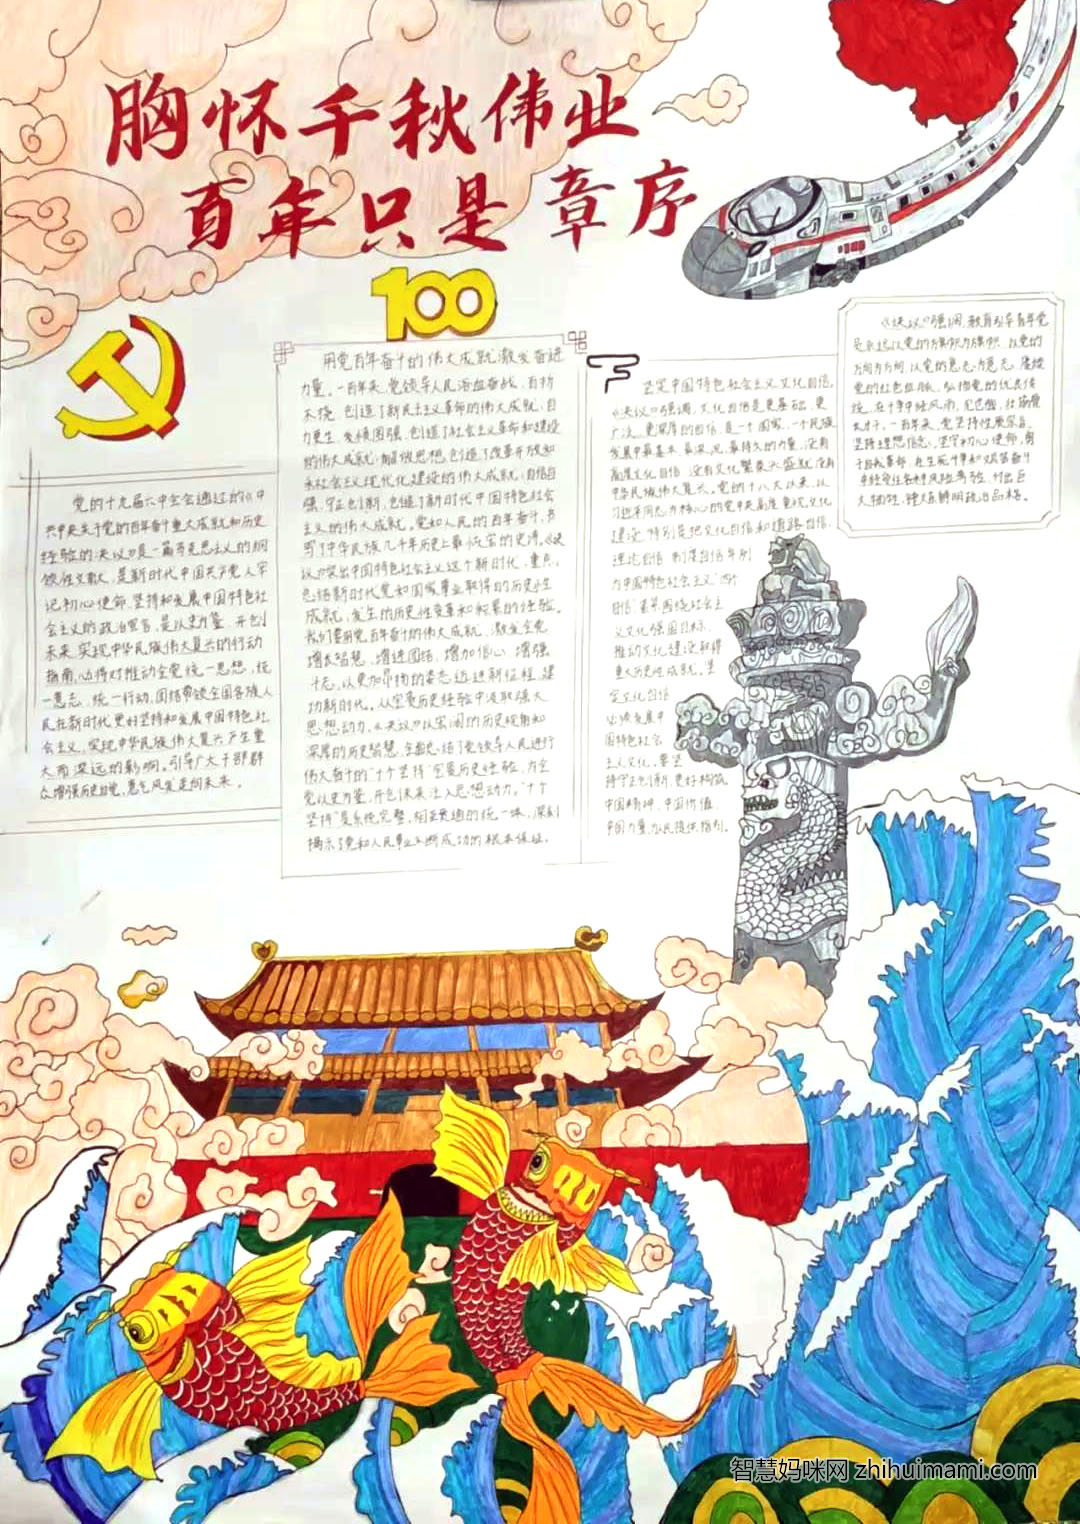 胸怀千秋伟业
百年只是章序
100
党的十九届六中全会通过的《中
共中央关于党的百年奋斗重大成就和历史
经验的决议》是一篇马克思主义的纲
领性文献，是新时代中国共产党人牢
记初心使命，坚持和发展中国特色
社会主义的政治宣言，是以史为鉴、开创
未来、实现中华民族伟大复兴的行动
指南，必将对推动全党统一思想、统
一意志、统一行动，团结带领全国各族人
民在新时代更好坚持和发展中国特色社
会主义，实现中华民族伟大复兴产生重
大而深远的影响。引导广大干部群
众增强历史自觉，意气风发走向未来。
用党百年奋斗的伟大成就激发奋进
力量。一百年来，党领导人民浴血奋战、百折
不挠，创造了新民主主义革命的伟大成就；自
力更生、发愤图强，创造了社会主义革命和建设
的伟大成就；解放思想，创造了改革开放和
社会主义现代化建设的伟大成就；自信自
强、守正创新，创造了新时代中国特色社会
主义的伟大成就。党和人民的百年奋斗，书
写了中华民族几千年历史上最恢宏的史诗。《决
议》突出中国特色社会主义这个新时代，重点
总结新时代党和国家事业取得的历史性
成就、发生的历史性变革和积累的经验。
我们要用党百年奋斗的伟大成就，激发全党
增长智慧、增进团结、增加信心、增强
斗志，以更加昂扬的姿态迈进新征程、建
功新时代。从宝贵历史经验中汲取强大
思想动力。《决议》以宏阔的历史视角和
深厚的历史智慧，全面总结了党领导人民进行
伟大奋斗的“十个坚持”宝贵历史经验，为全
党以史为鉴、开创未来注入思想动力。“十个
坚持”是系统完整、相互贯通的统一体，深刻
揭示了党和人民事业不断成功的根本保证。
坚定中国特色社会主义文化自信。
《决议》强调，文化自信是更基础、更
广泛、更深厚的自信，是一个国家、一个民族
发展中最基本、最深沉、最持久的力量，没有
高度文化自信、没有文化繁荣兴盛就没有
中华民族伟大复兴。党的十八大以来，以
习近平同志为核心的党中央高度重视文化
建设，特别是把文化自信和道路自信、
理论自信、制度自信并列
为中国特色社会主义“四个
自信”，着眼围绕社会主
义文化强国目标，
推动文化建设取得
重大历史性成就。坚
定文化自信，
必须发展中
国特色社会
主义文化，要坚
持守正创新，更好构筑
中国精神、中国价值、
中国力量，为人民提供指引。
《决议》强调，教育引导青年党
员永远以党的旗帜为旗帜、以党的
方向为方向、以党的意志为意志，赓续
党的红色血脉，弘扬党的优良传
统，在斗争中经风雨、见世面、壮筋骨、
长才干。一百年来，党坚持性质宗旨，
坚持理想信念，坚守初心使命，勇
于自我革命，在生死斗争和艰苦奋斗
中经受住各种风险考验、付出巨
大牺牲，锤炼鲜明政治品格。
智慧妈咪网 zhihuimami.com